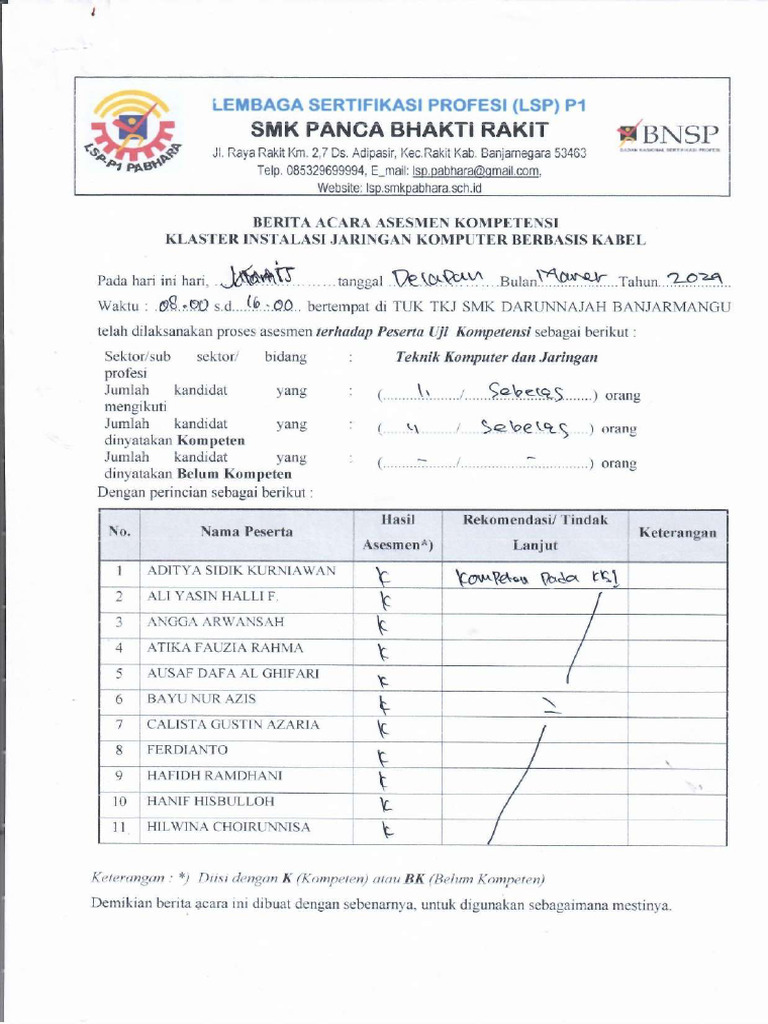 LEMBAGA SERTIFIKASI PROFESI (LSP) P1
SMK PANCA BHAKTI RAKIT
Jl. Raya Rakit Km. 2,7 Ds. Adipasir, Kec.Rakit Kab. Banjarnegara 53463
Telp. 085329699994, E_mail: lsp.pabhara@gmail.com,
Website: lsp.smkpabhara.sch.id
LSP-P1 PABHARA
BNSP
BADAN NASIONAL SERTIFIKASI PROFESI
BERITA ACARA ASESMEN KOMPETENSI
KLASTER INSTALASI JARINGAN KOMPUTER BERBASIS KABEL
Pada hari ini hari, tanggal Delapan Bulan Maret Tahun
Waktu : 08.00 s.d. 16.00 bertempat di TUK TKJ SMK DARUNNAJAH BANJARMANGU
telah dilaksanakan proses asesmen terhadap Peserta Uji Kompetensi sebagai berikut :
Sektor/sub sektor/ bidang profesi : Teknik Komputer dan Jaringan
Jumlah kandidat yang mengikuti : (11 / Sebelas) orang
Jumlah kandidat yang dinyatakan Kompeten : (11 / Sebelas) orang
Jumlah kandidat yang dinyatakan Belum Kompeten : (- / -) orang
Dengan perincian sebagai berikut :
No. Nama Peserta Hasil Asesmen*) Rekomendasi/ Tindak Lanjut Keterangan
1 ADITYA SIDIK KURNIAWAN K Kompeten pada
2 ALI YASIN HALLI F. K
3 ANGGA ARWANSAH K
4 ATIKA FAUZIA RAHMA K
5 AUSAF DAFA AL GHIFARI K
6 BAYU NUR AZIS K
7 CALISTA GUSTIN AZARIA K
8 FERDIANTO K
9 HAFIDH RAMDHANI K
10 HANIF HISBULLOH K
11 HILWINA CHOIRUNNISA K
Keterangan : *) Diisi dengan K (Kompeten) atau BK (Belum Kompeten)
Demikian berita acara ini dibuat dengan sebenarnya, untuk digunakan sebagaimana mestinya.